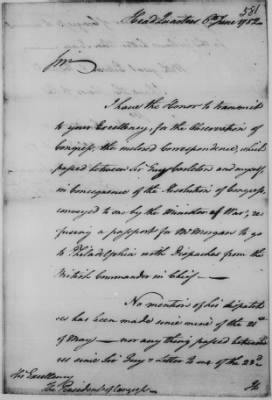 551
Head Quarters 6th June 1782
Sir
I have the Honor to transmit
to your Excellency, for the Observation of
Congress, the inclosed Correspondence, which
passed between Sir Guy Carleton and myself,
in Consequence of the Resolution of Congress,
conveyed to me by the Minister of War, re-
fusing a passport for Mr Morgan to go
to Philadelphia with Dispatches from the
British Commander in Chief —
No mention of his dispatch-
es has been made since mine of the 21st
of May — nor any thing passed between
us since Sir Guy's Letter to me of the 23d
His Excellency
The President of Congress